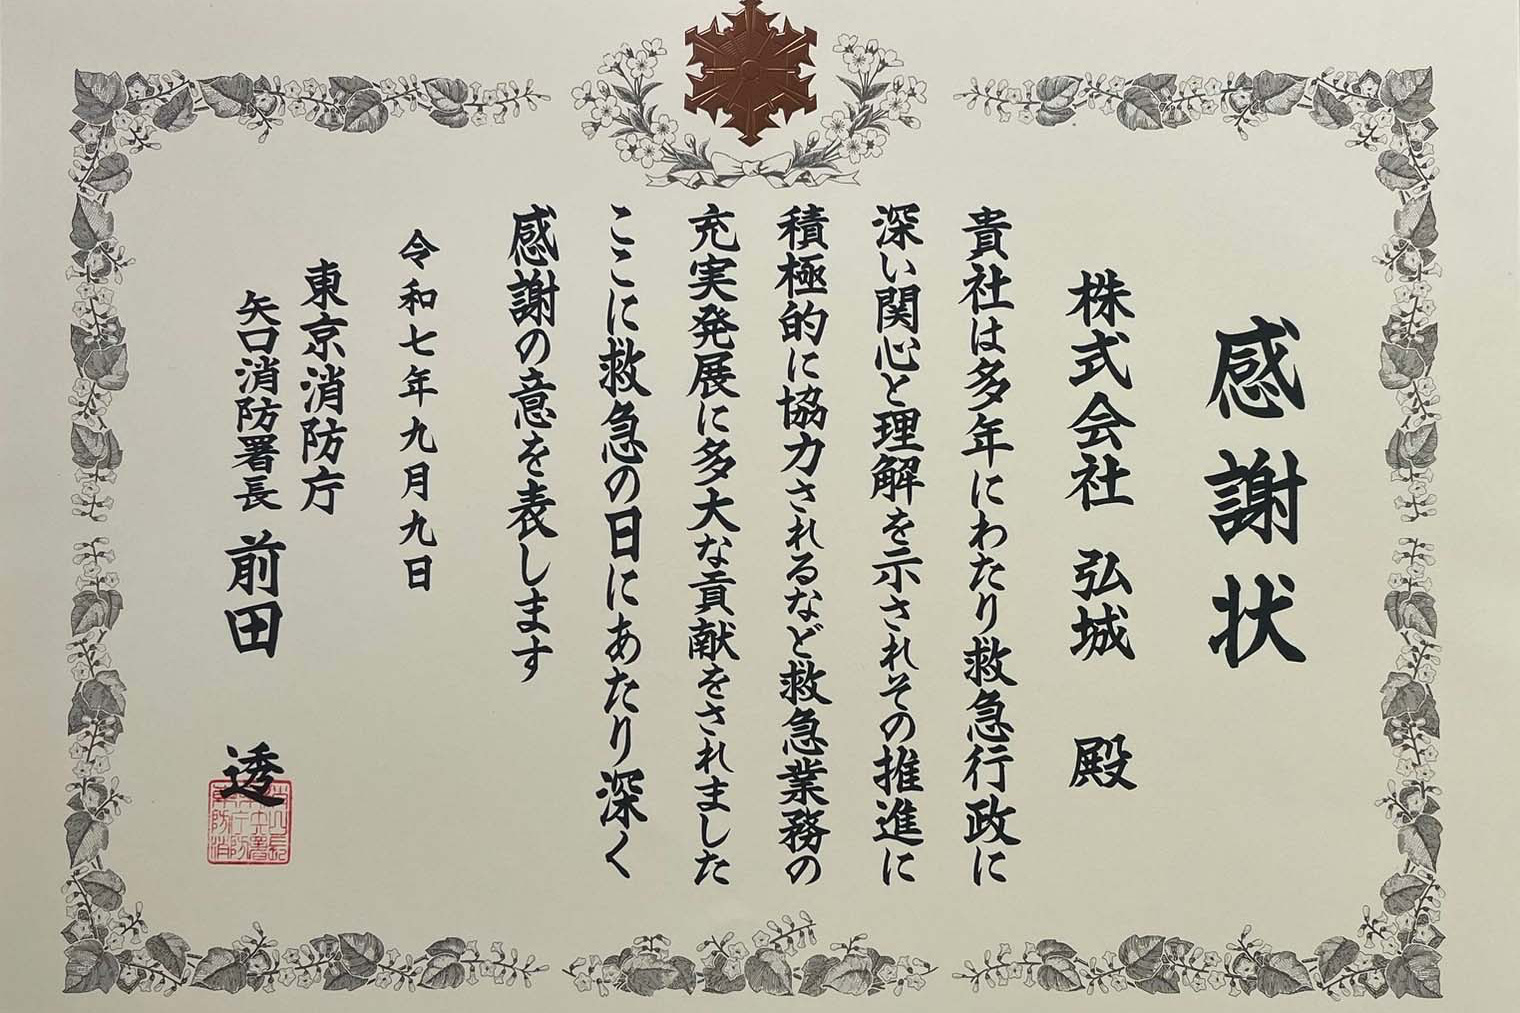 感謝状
株式会社 弘城 殿
貴社は多年にわたり救急行政に
深い関心と理解を示されその推進に
積極的に協力されるなど救急業務の
充実発展に多大な貢献をされました
ここに救急の日にあたり深く
感謝の意を表します
令和七年九月九日
東京消防庁
矢口消防署長 前田 透